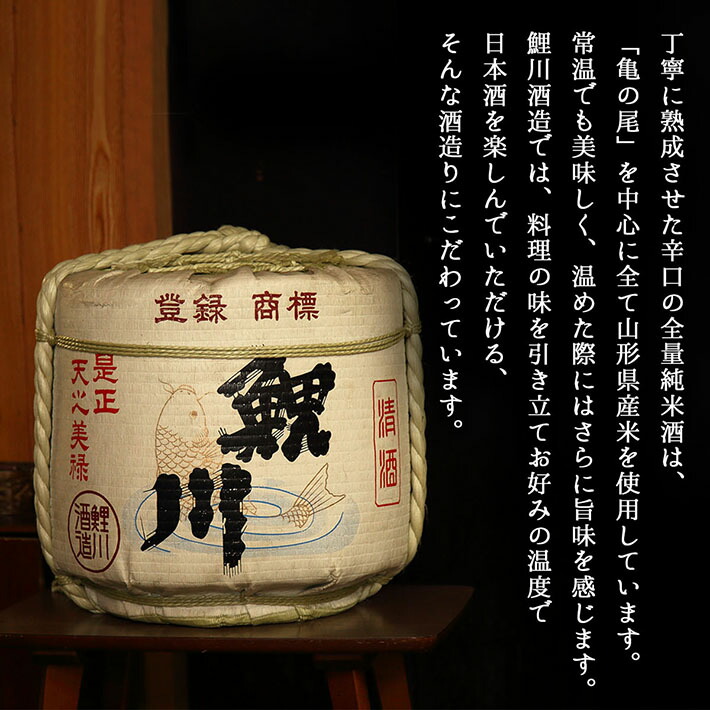 丁寧に熟成させた辛口の全量純米酒は、
「亀の尾」を中心に全て山形県産米を使用しています。
常温でも美味しく、温めた際にはさらに旨味を感じます。
鯉川酒造では、料理の味を引き立てお好みの温度で
日本酒を楽しんでいただける、
そんな酒造りにこだわっています。
登録 商標
清酒
鯉川
是正
天之美禄
鯉川
酒造